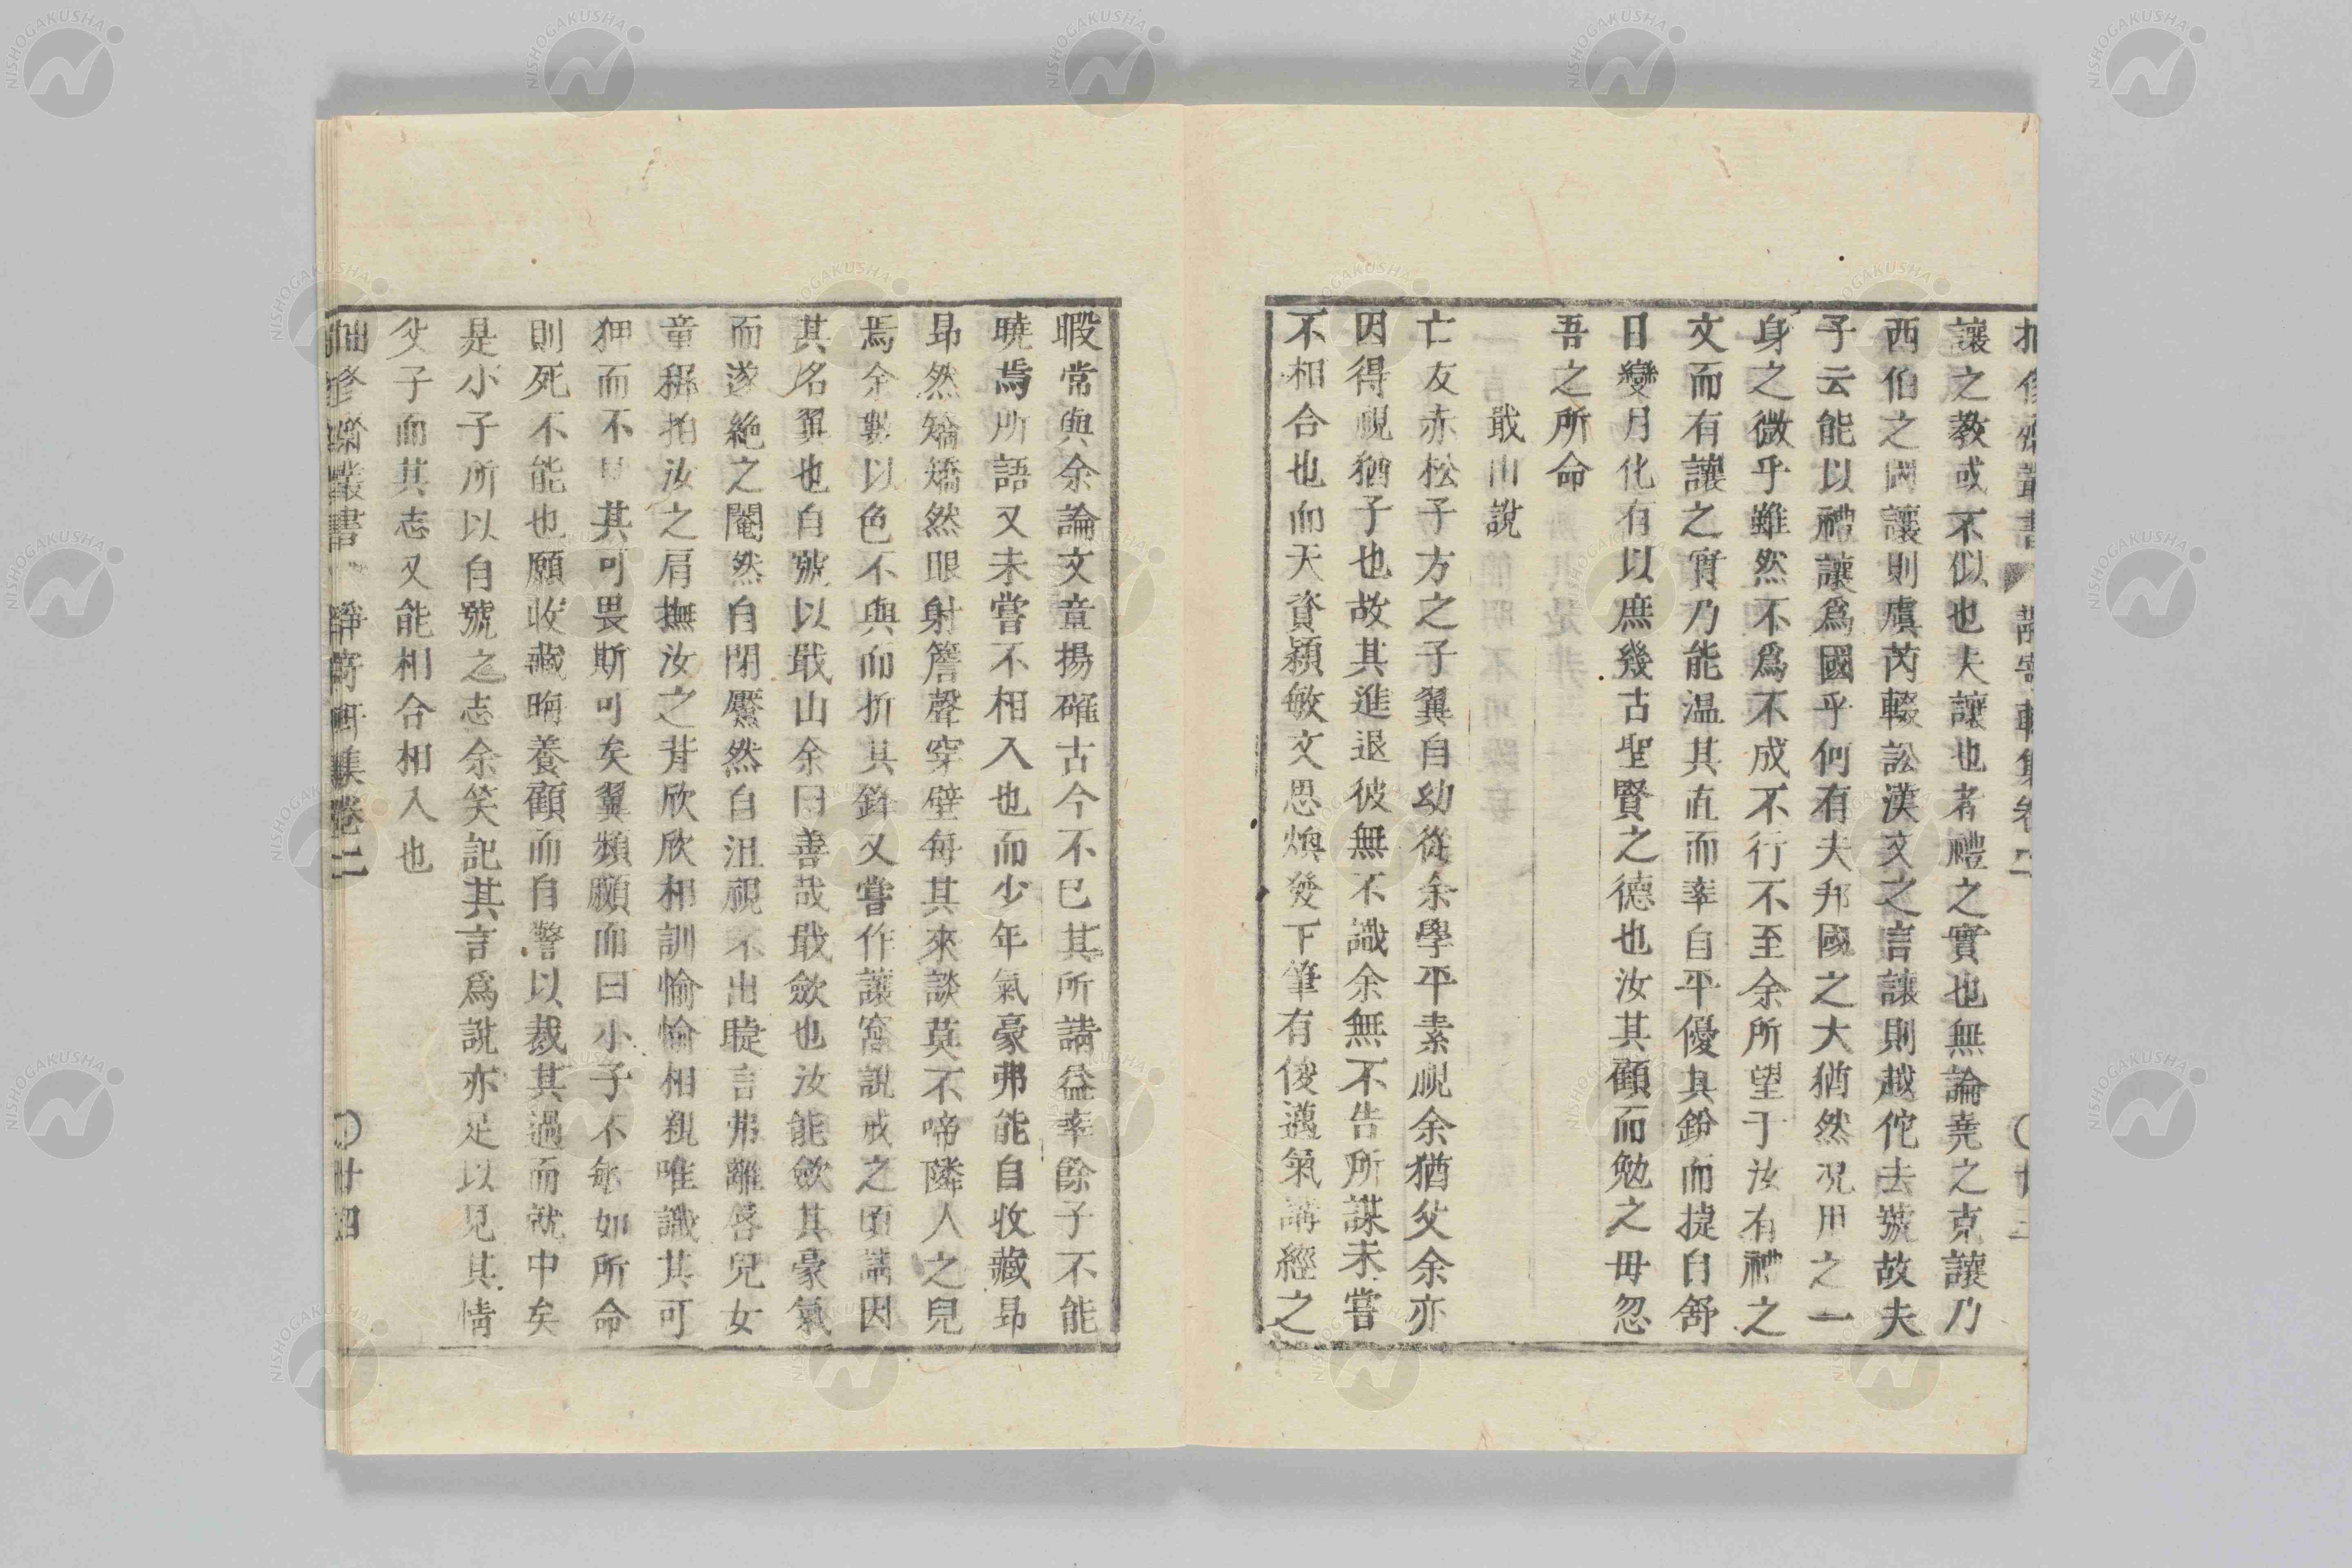 讓之教或不似也夫讓也者禮之實也無論堯之克讓乃
西伯之國讓則虞芮輟訟漢文之言讓則越佗去號故夫
子云能以禮讓爲國乎何有夫邦國之大猶然况用之一
身之微乎雖然不爲不成不行不至余所望于汝有禮之
文而有讓之實乃能温其直而率自平優其銳而捷自舒
日變月化有以庶幾古聖賢之德也汝其顧而勉之毋忽
吾之所命
戢山說
亡友赤松子方之子翼自幼從余學平素視余猶父余亦
因得視猶子也故其進退彼無不識余無不告所謀未嘗
不相合也而天資穎敏文思煥發下筆有俊邁氣講經之
暇常與余論文章揚確古今不已其所請益率餘子不能
曉焉所語又未嘗不相入也而少年氣豪弗能自收藏昻
昻然矯矯然眼射簷聲穿壁每其來談莫不啼隣人之兒
焉余數以色不與而折其鋒又嘗作讓窩說戒之頃請因
其名翼也自號以戢山余曰善哉戢斂也汝能斂其豪氣
而遂絶之闇然自閉黶然自沮視不出睫言弗離唇兒女
童穉拍汝之肩撫汝之背欣欣相訓愉愉相親唯識其可
狎而不見其可畏斯可矣翼頻願而曰小子不敏如所命
則死不能也願收藏晦養顧而自警以裁其過而就中矣
是小子所以自號之志余笑記其言爲說亦足以見其情
父子而其志又能相合相入也
叢書 集卷二 〇廿四
NISHOGAKUSHA